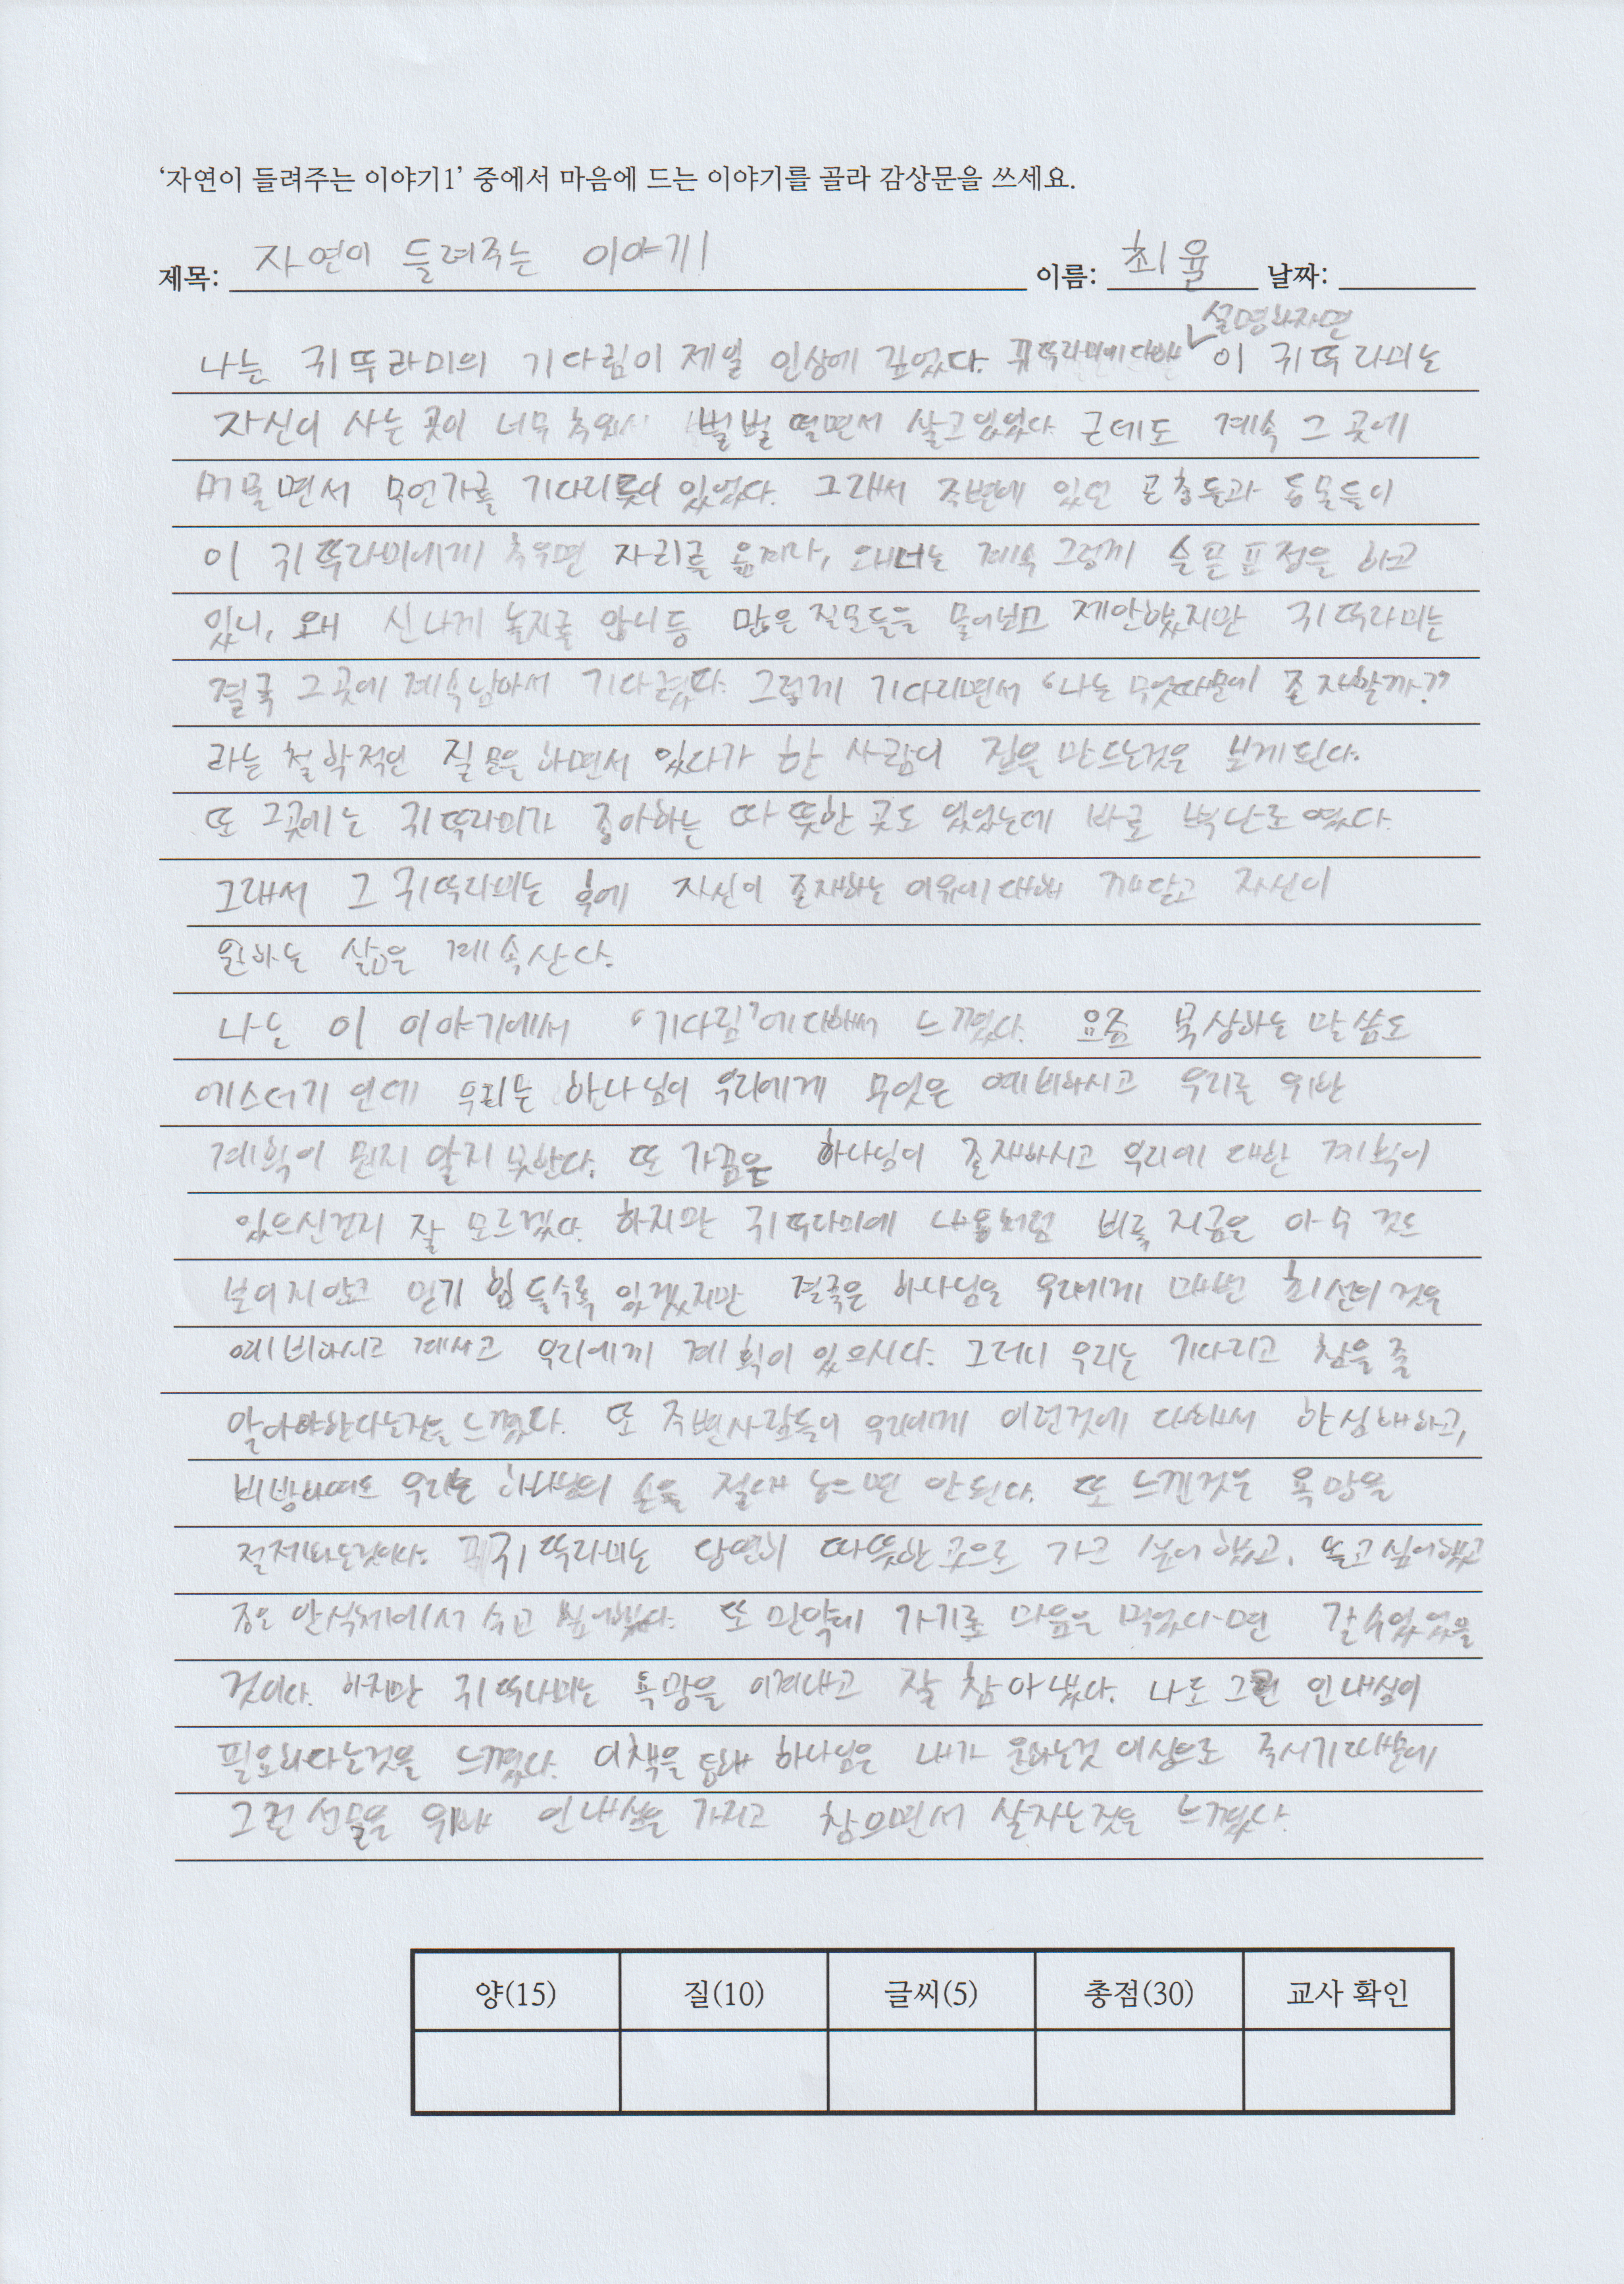 '자연이 들려주는 이야기1' 중에서 마음에 드는 이야기를 골라 감상문을 쓰세요.
제목: 자연이 들려주는 이야기1 이름: 최율 날짜:
설명하자면
나는 귀뚜라미의 기다림이 제일 인상에 깊었다. 귀뚜라미에 대해 이 귀뚜라미는
자신이 사는 곳이 너무 추워서 벌벌 떨면서 살고있었다. 근데도 계속 그 곳에
머물면서 무언가를 기다리듯이 있었다. 그래서 주변에 있던 곤충들과 동물들이
이 귀뚜라미에게 추우면 자리를 옮겨라, 왜너는 계속 그렇게 슬픈표정을 하고
있니, 왜 신나게 놀지를 않니등 많은 질문들을 물어보고 제안했지만 귀뚜라미는
결국 그곳에 계속남아서 기다렸다. 그렇게 기다리면서 '나는 무엇때문에 존재할까?'
라는 철학적인 질문을 하면서 있다가 한 사람이 집을 만드는것을 보게된다.
또 그곳에는 귀뚜라미가 좋아하는 따뜻한 곳도 있었는데 바로 벽난로였다.
그래서 그 귀뚜라미는 후에 자신이 존재하는 이유에대해 깨닫고 자신이
원하는 삶을 계속산다.
나는 이 이야기에서 '기다림'에대해서 느꼈다. 요즘 묵상하는 말씀도
에스더기 인데 우리는 하나님이 우리에게 무엇을 예비하시고 우리를 위한
계획이 뭔지 알지 못한다. 또 가끔은 하나님이 존재하시고 우리에 대한 계획이
있으신건지 잘 모르겠다. 하지만 귀뚜라미에 내용처럼 비록 지금은 아무 것도
보이지않고 믿기 힘들수도 있겠지만 결국은 하나님은 우리에게 매번 최선의 것을
예비하시고 계시고 우리에게 계획이 있으시다. 그러니 우리는 기다리고 참을 줄
알아야한다는것을 느꼈다. 또 주변사람들이 우리에게 이런것에 대해서 한심해하고,
비방하여도 우리는 하나님의 손을 절대 놓으면 안된다. 또 느낀것은 욕망을
절제하는것이다. 귀뚜라미는 당연히 따뜻한 곳으로 가고 싶어 했고, 놀고싶어했고
좋은 안식처에서 쉬고 싶어했다. 또 만약에 가기로 마음을 먹었다면 갈수있었을
것이다. 하지만 귀뚜라미는 욕망을 이겨내고 잘 참아냈다. 나도 그런 인내심이
필요하다는것을 느꼈다. 이책을 통해 하나님은 내가 원하는것 이상으로 주시기때문에
그런 선물을 위해 인내심을 가지고 참으면서 살자는것을 느꼈다.
양(15) 질(10) 글씨(5) 총점(30) 교사 확인